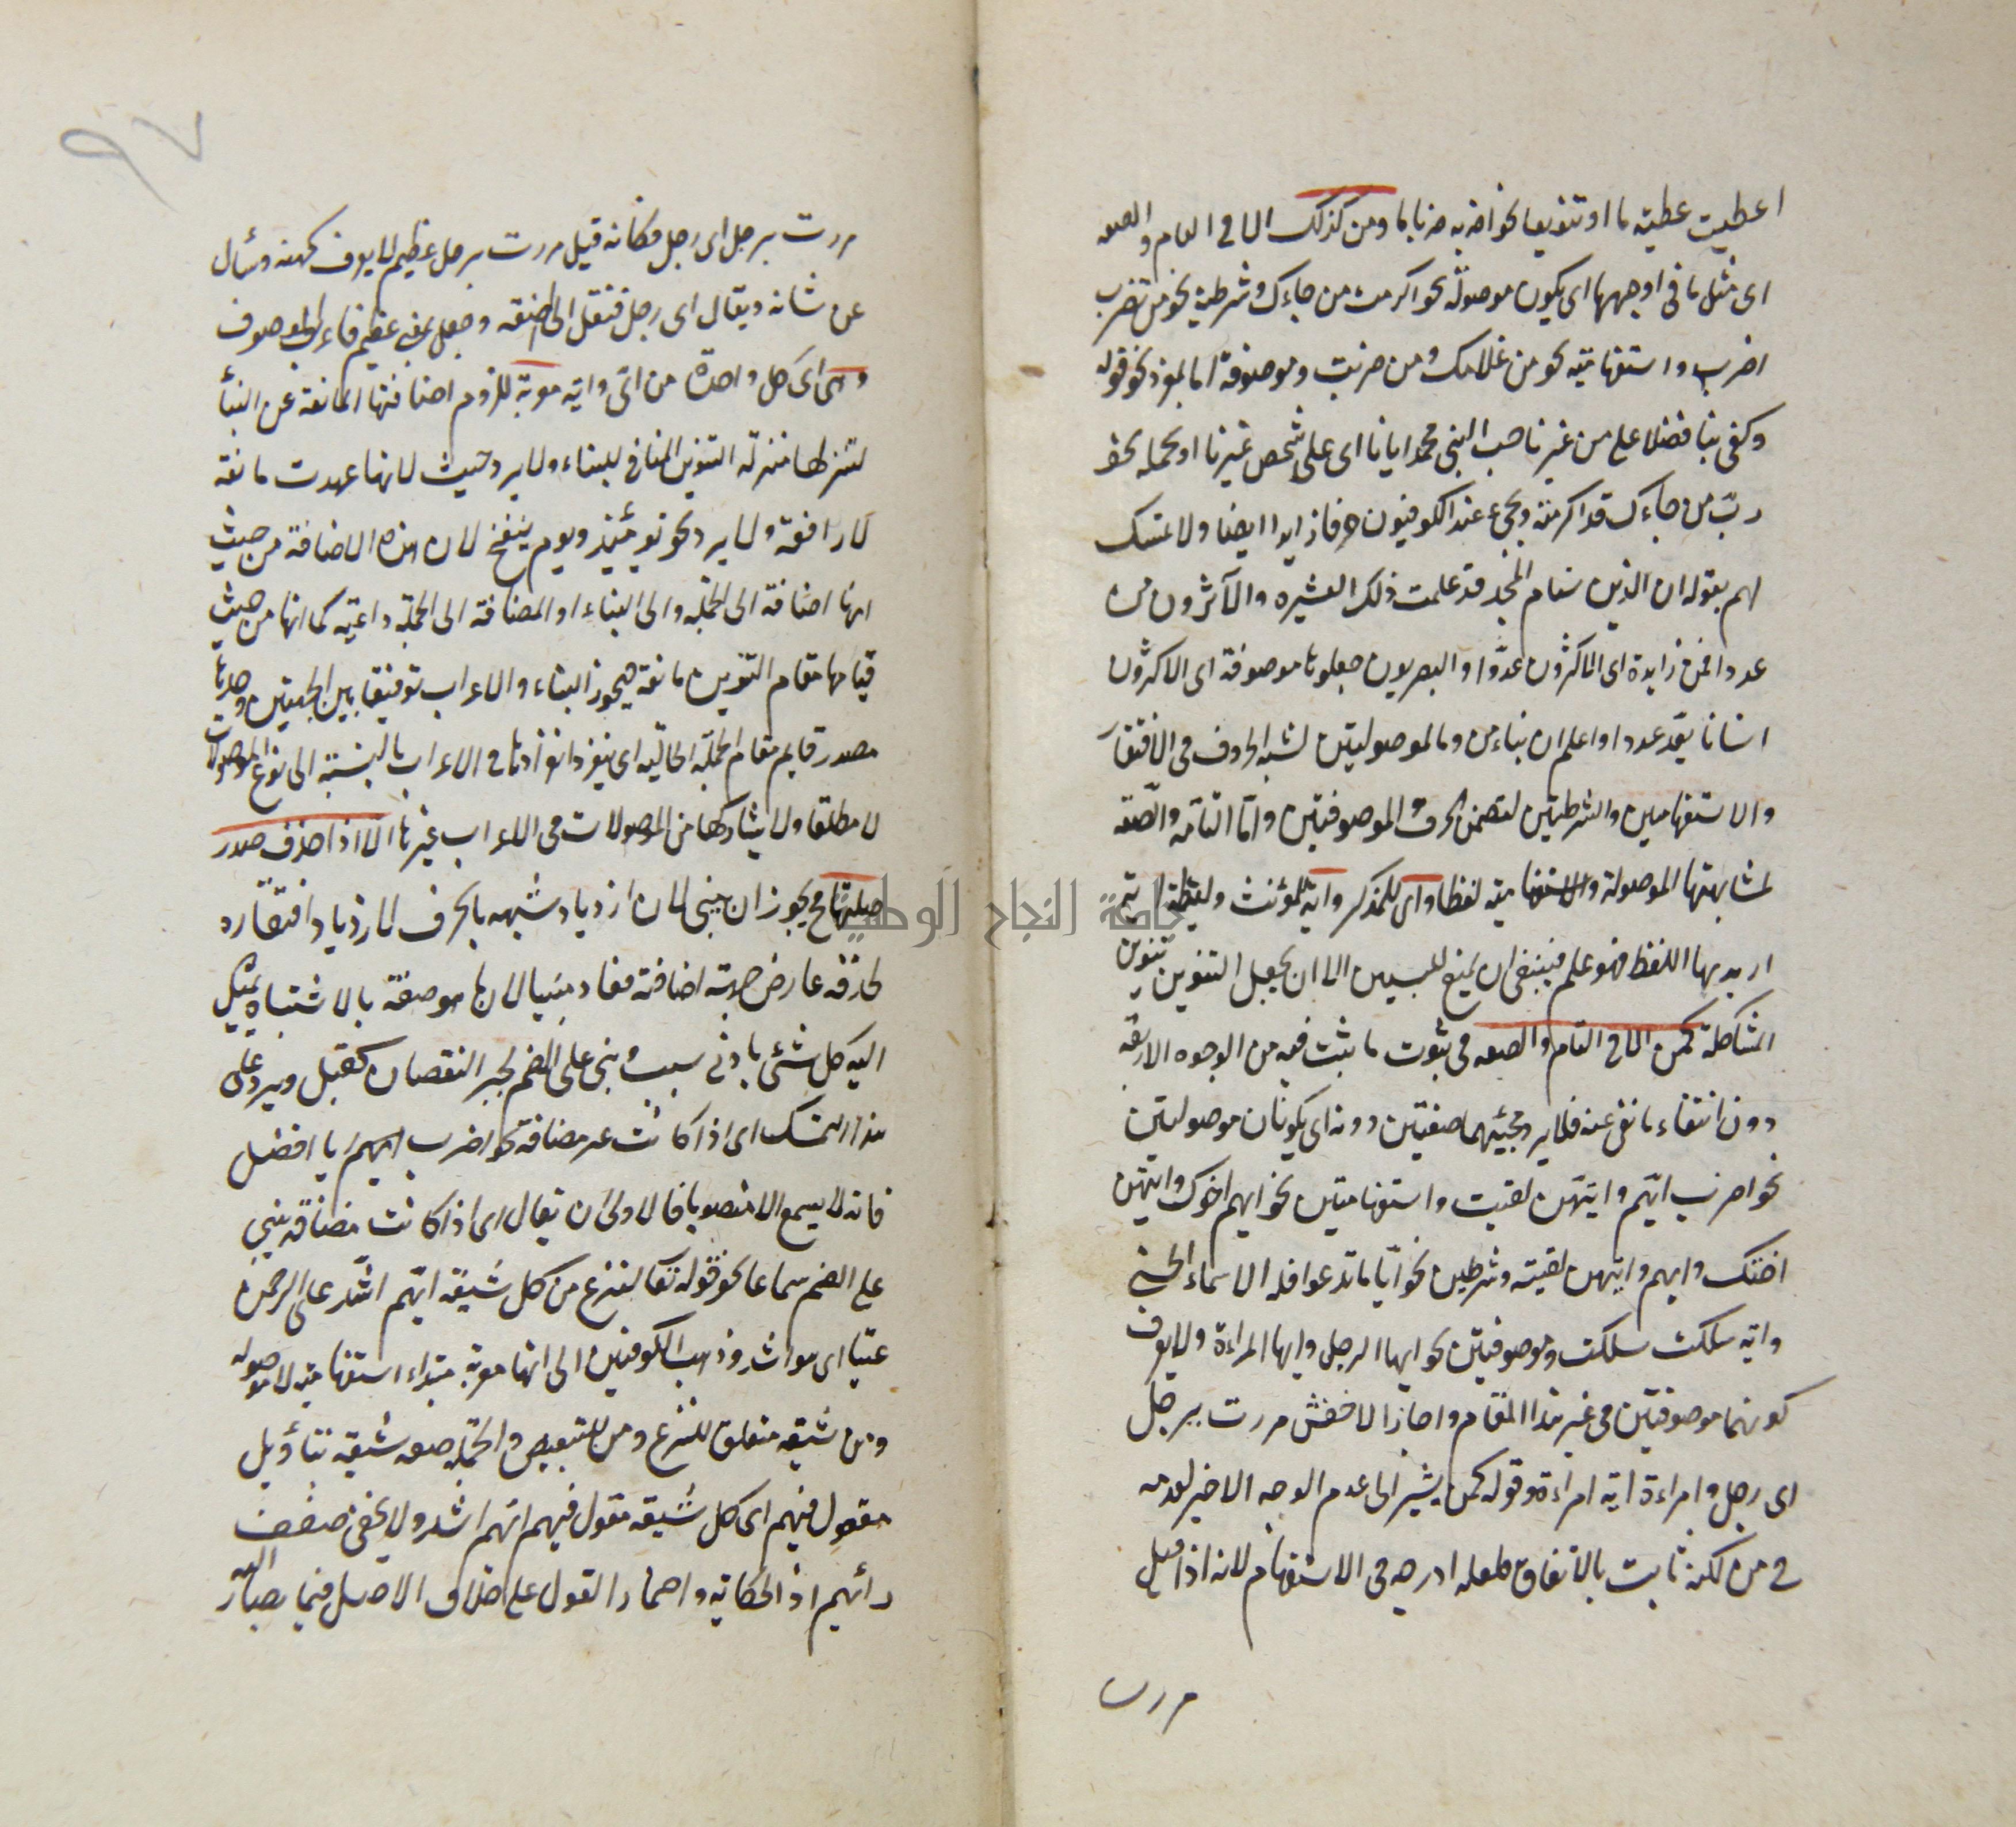 اعطيت عطية ما او تنويعا نحو اضربه ضربا ما ومن كذلك الا فى التام والصفه
اى مثل ما فى اوجهها اى يكون موصولة نحو اكرمت من جاءك وشرطية نحو من تضرب
اضرب واستفهامية نحو من غلامك ومن ضربت وموصوفة اما بمفرد نحو قوله
وكفى بنا فضلا على من غيرنا حب النبى محمد ايانا اى على شخص غيرنا او بجملة نحو
رب من جاءك قد اكرمته ويجئ عند الكوفيون حرفا زايدا ايضا ولا تمسك
لهم بقوله ان الذين سنام المجد قد علمت ذلك العشيره والآثرون من
عددا فمن زايدة اى الاكثرون عددا والبصريون جعلوها موصوفة اى الاكثرون
انسانا يعد عددا واعلم ان بناء من وما الموصوليتين لشبه الحروف فى الافتقار
والاستفهاميين والشرطيتين لتضمن الحرف والموصوفتين واما التامة والصفة
لمشابهتها الموصولة والاستفهامية لفظا واى للمذكر واية للمؤنث ولفظة اية
اريد بها اللفظ فهو علم فينبغى ان يمنع للسببين الا ان يجعل التنوين تنوين
المشاكلة كمن الا فى التام والصفه فى ثبوت ما يثبت فيه من الوجوه الاربعة
دون انتفاء ما نفى عنه فلا يرد مجيئهما صفتين دونه اى يكونان موصوليتين
نحو اضرب ايهم وايتهن لقيت واستفهاميتين نحو ايهم اخوك وايتهن
اختك وايهم وايتهن لقيته وشرطيين نحو ايا ما تدعوا فله الاسماء الحسنى
واية سلكت سلكت وموصوفتين نحو ايها الرجل وايها المراءة ولا يعرف
كونهما موصوفتين فى غير هذا المقام واجاز الاخفش مررت برجل
اى رجل وامراءة اية امراءة وقوله كمن يشير الى عدم الوجه الاخير لعدمه
فى من لكنه ثابت بالاتفاق فلعله ادرجه فى الاستفهام لانه اذا قيل
مررت
٩٧
مررت برجل اى رجل فكانه قيل مررت برجل عظيم لا يعرف كهنه وسأل
عن شانه ويقال اى رجل فنقل الى الصفة وجعل بمعنى عظيم فاعرب الموصوف
وهى اى كل واحدة من اى واية معربة للزوم اضافتها المانعة عن البنأ
لتنزلها منزلة التنوين المنافى للبناء ولا يرد حيث لانها عهدت مانعة
لا رافعة ولا يرد نحو يومئيذ ويوم ينفخ لان هذه الاضافة من حيث
انها اضافة الى الجملة والى البناء او المضافة الى الجملة داعية كما انها من حيث
قيامها مقام التنوين مانعة فيجوز البناء والاعراب توفيقا بين الجهتين وحدها
مصدر قايم مقام الجملة الحالية اى ينفرد انفرادها فى الاعراب بالنسبة الى نوع الموصولات
لا مطلقا ولا يشاركها من الموصولات فى الاعراب غيرها الا اذا حذف صدر
صلتها فح يجوز ان يبنى لان ازدياد شبهه بالحرف لازدياد افتقاره
لحذفه عارض جهة اضافته فعاد مبنيا لانها موصوفة بالاشتباه يميل
اليه كل شئ بادنى سبب وبنى على الضم لجبر النقصان كقبل ويرد على
هذا التمسك اى اذا كانت غير مضافة نحو اضرب ايهم يا افضل
فانه لا يسمع الا منصوبا فالاولى ان يقال اى اذا كانت مضافة يبنى
على الضم سماعا نحو قوله تعالى لننزع من كل شيعة ايهم اشد على الرحمن
عتيا اى هو اشد وذهب الكوفيين الى انها معربة مبتداء استفهامية لا موصوله
ومن شيعه متعلق لننزع ومن للتبعيض والجملة صفه شيعه بتأويل
مقول فيهم اى كل شيعه مقول فيهم ايهم اشد ولا يخفى ضعف
رائهم اذ الحكاية واضمار القول على خلاف الاصل فيما يصار اليه
جامعة النجاح الوطنية